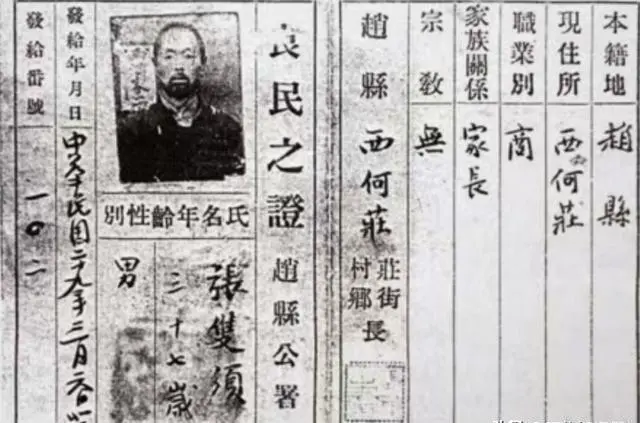 本籍地 趙縣
現住所 西何莊
職業別 商
家族關係 家長
宗教 無
趙縣西何莊
莊街
村鄉
長
良民之證 趙縣公署
氏名年齡性別
張隻須
三十七歲
男
發給年月日 民国二十九年三月
發給番號 一〇二